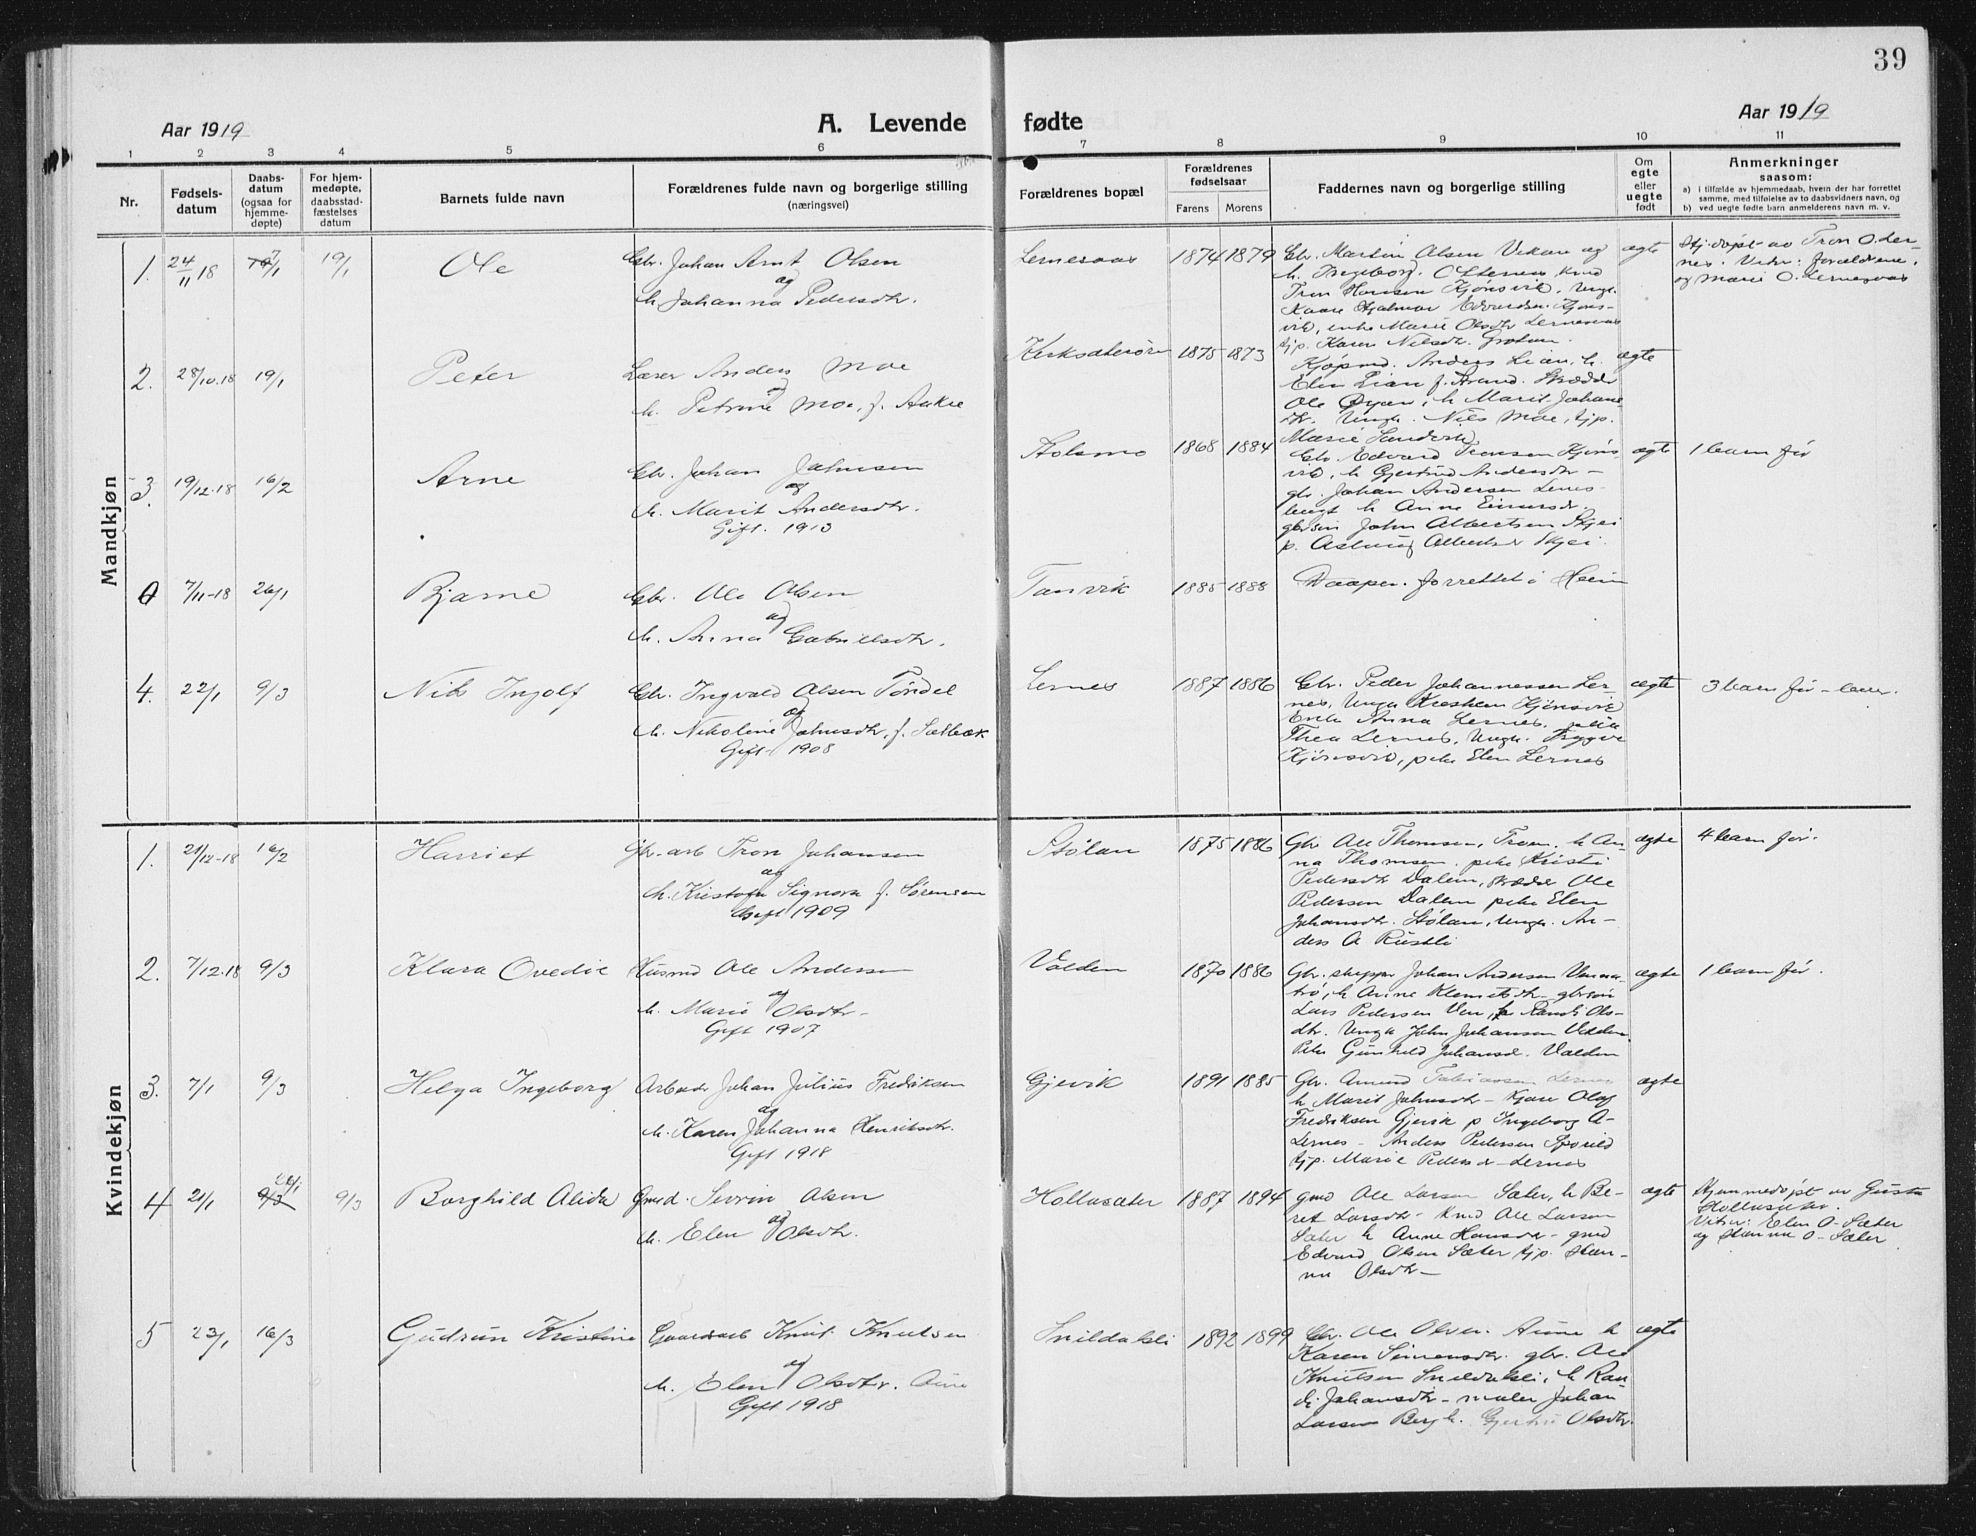 39
Aar 1919
A. Levende fødte
Aar 1919
1 2 3 4 5 6 7 8 9 10 11
Nr.
Fødsels-
datum
Daabs-
datum
(ogsaa for
hjemme-
døpte)
For hjem-
medøpte,
daabsstad-
fæstelses
datum
Barnets fulde navn
Forældrenes fulde navn og borgerlige stilling
(næringsvei)
Forældrenes bopæl
Forældrenes
fødselsaar
Farens Morens
Faddernes navn og borgerlige stilling
Om
egte
eller
uegte
født
Anmerkninger
saasom:
a) i tilfælde av hjemmedaab, hvem der har forrettet
samme, med tilføielse av to daabsvidners navn, og
b) ved uegte fødte barn anmelderens navn m. v.
Mandkjøn
1. 24/11 18 7/1 19/1 Ole
Gbr. Johan Arnt Olsen
og
h. Johanna Pedersdtr.
Lernesaas 1874 1879
Gbr. Martin Olsen Vekan og
h. Ingeborg
Tron Hansen Kjønsvik, Ungk.
Kaare Hjalmar Edvardsen Kjøns-
vik, enke Marie Olsdtr Lernesaas
tjp. Karen Nilsdtr. Grotan
ægte
Hj.døpt av Tron O. Ler-
nes. Vidn: forældrene,
og Marie O. Lernesaas
2. 28/10.18 19/1 Peter
Lærer Anders Moe
og
h. Petrine Moe, f. Aakre
Kirksæterøra 1875 1873
Kjøpmd. Anders Lian, h.
Elen Lian f. Strand. Skrædder
Ole Øyan, h Marit Johans-
dtr. Ungk. Nils Moe, tjp.
Marie Sanderk
ægte
3. 19/12.18 16/2 Arne
Gbr. Johan Johnsen
og
h. Marit Andersdtr.
Gift. 1913
Holsmo 1868 1884
Gbr Edvard Tronsen Kjøns-
vik, h Gjertrud Andersdtr -
gbr. Johan Andersen Lernes-
bugt h Anne Einarsdr.
gbrsøn John Albertsen Skjei
p. Aslaug Albertsdr Skjei.
ægte 1 barn før
0 7/11-18 26/1 Bjarne
Gbr. Ole Olsen
og
h. Anna Gabrielsdtr.
Tanvik 1885 1888
Daapen forrettet i Heim
4. 22/1 9/3 Nils Ingolf
Gbr. Ingvald Olsen Tøndel
og
h. Nikoline Johnsdtr. f. Sætbæk
Gift 1908
Lernes 1887 1886
Gbr. Peder Johannessen Ler-
nes, Ungk Kristian Kjønsvik
Enke Anna Lernes, pike
Thea Lernes, Ungk. Trygve
Kjønsvik, pike Elen Lernes
ægte 3 barn før - lever.
Kvindekjøn
1. 21/12-18 16/2 Harriet
Gbr-arb Tron Johansen
og
h. Kristofa Signora f. Sørensen
Gift 1909
Stølan 1875 1886
Gbr Ole Thomsen, Troen. h An-
na Thomsen. pike Kristi
Pedersdtr Dalem, skrædder Ole
Pedersen Dalem pike Elen
Johansdtr. Stølan, Ungk. An-
ders A Rustli
ægte 4 barn før.
2. 7/12.18 9/3 Klara Ovedie
Husmd Ole Andersen
og
h. Marie Olsdtr-
Gift 1907
Valden 1870 1886
Gbr. skipper Johan Andersen
h Anne Klemetsdtr - gbrsøn
Lars Pedersen Ven, h Randi Ols-
dtr. Ungk John Johansen Valden
Pike Gunhild Johansd. Valden
ægte 1 barn før.
3. 7/1 9/3 Helga Ingeborg
Arbeider Johan Julius Fredriksen
og
h. Karen Johanna Henriksdtr.
Gift 1918
Gjevik 1891 1885
Gbr. Amund Tobiassen Lernes
h Marit Johnsdtr- Kjøre Olaf
Fredriksen Gjevik p Ingeborg A-
Lernes - Anders Pedersen
tjp. Marie Pedersdr - Lernes
ægte
4 21/1 9/3 26/1 9/3 Borghild Alida
Gmd. Sevrin Olsen
og
h. Elen Olsdtr.
Hollasæter 1887 1894
gmd Ole Larsen Sæter, h Be-
ret Larsdtr- Kmd Ole Larsen
Sæter h Anne Hansdr- gmd
Edvard Olsen Sæter tjp. Han-
na Olsdtr-
ægte
Hjemmedøpt av Gusta
Hollasæter.
Vitner: Elen O. Sæter
og Hanna O- Sæter
5 23/1 16/3 Gudrun Kristine
Gaardarb Knut Knutsen
og
h. Elen Olsdtr. Aune
Gift 1918
Snildalsli 1892 1899
Gbr. Ole Olsen. Aune h
Karen Simensdtr. gbr. Ole
Knutsen Snildalsli, h Ran-
di Johansdtr - maler Johan
Larsen Berg h. Gjertru Olsdtr.
ægte